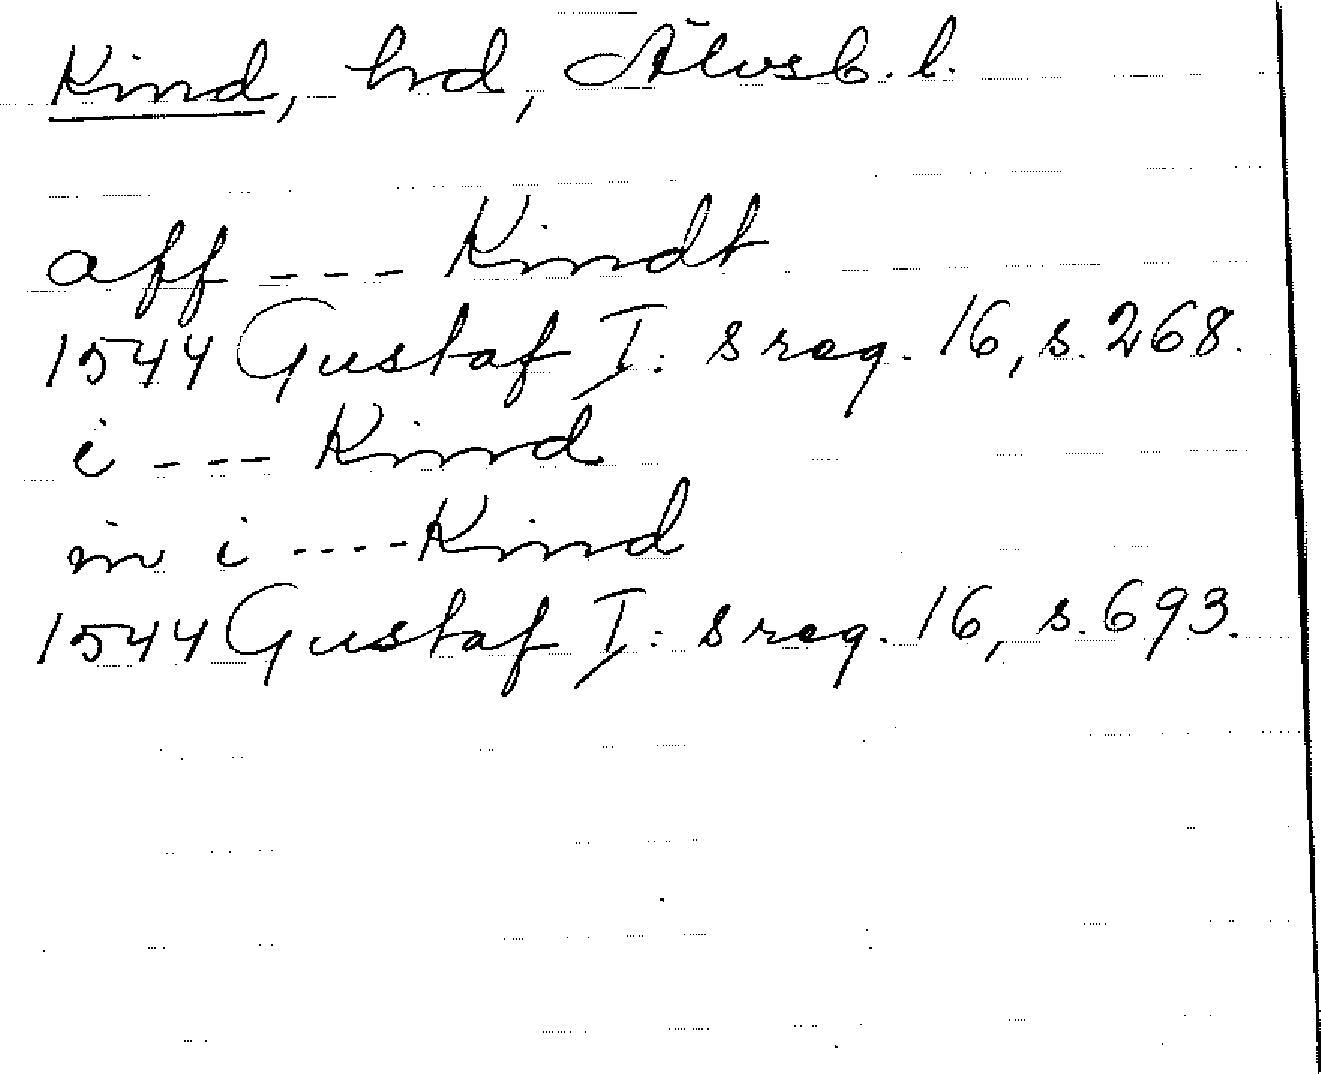 Kind, hd, Älvsb. l.
aff --- Kindt
1544 Gustaf I: s reg. 16, s. 268.
i --- Kind
in i ---- Kind
1544 Gustaf I: s reg. 16, s. 693.